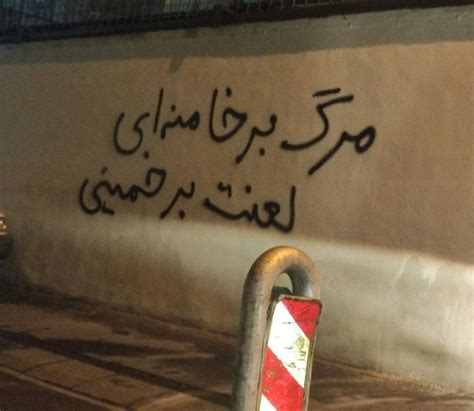 مرگ بر خامنه‌ای
لعنت بر خمینی